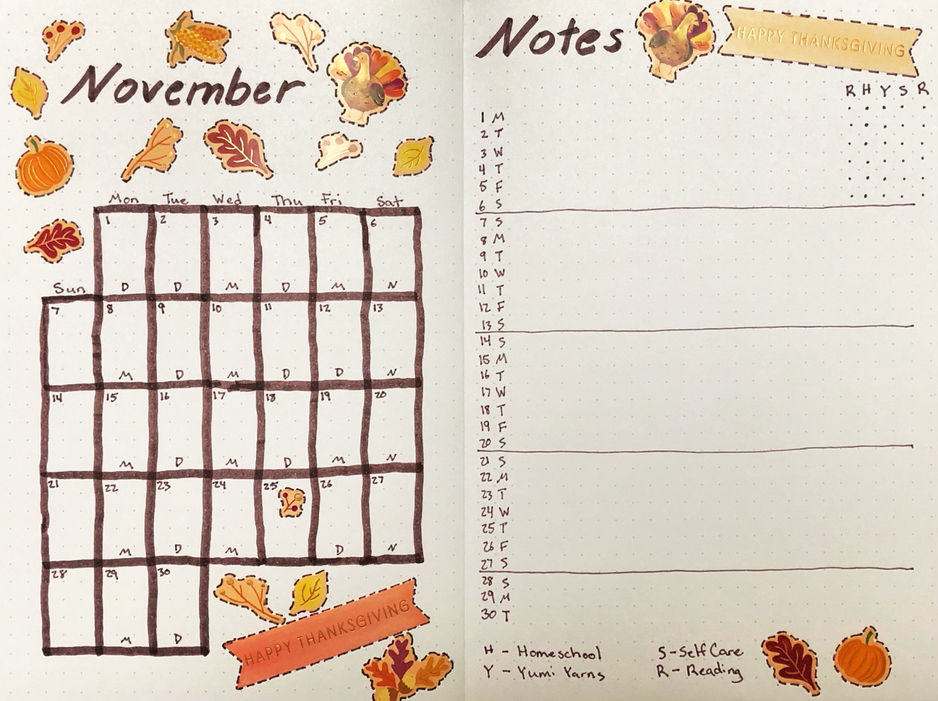 November
Mon Tue Wed Thu Fri Sat
1 2 3 4 5 6
D D M D M N
Sun
7 8 9 10 11 12 13
M D M D D N
14 15 16 17 18 19 20
M D M D M N
21 22 23 24 25 26 27
M D M D N
28 29 30
M D
HAPPY THANKSGIVING
Notes
HAPPY THANKSGIVING
R H Y S R
1 M
2 T
3 W
4 T
5 F
6 S
7 S
8 M
9 T
10 W
11 T
12 F
13 S
14 S
15 M
16 T
17 W
18 T
19 F
20 S
21 S
22 M
23 T
24 W
25 T
26 F
27 S
28 S
29 M
30 T
H - Homeschool S - Self Care
Y - Yumi Yarns R - Reading